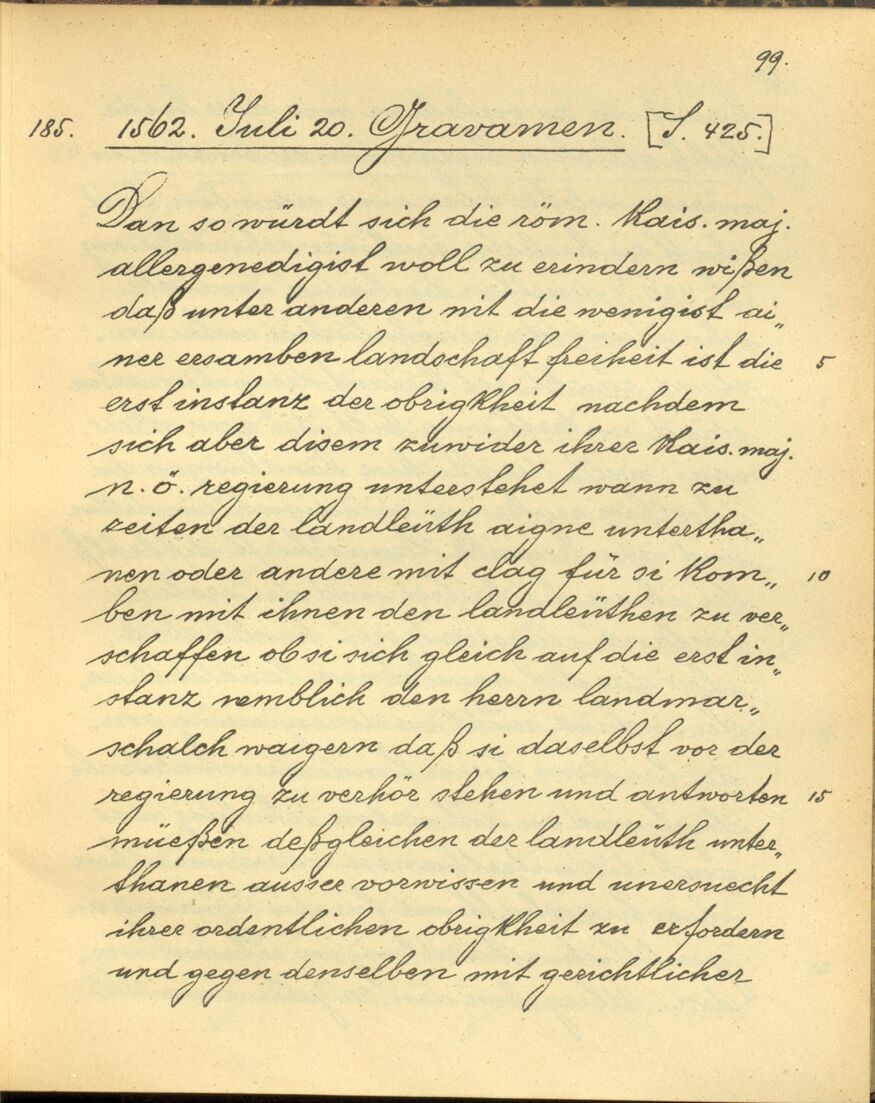 99.
185. 1562. Juli 20. Gravamen. [S. 425.]
Dan so würdt sich die röm. Kais. maj.
allergenedigist woll zu erindern wißen
daß unter anderen nit die wenigist ai„
ner ersamben landschaft freiheit ist die 5
erst instanz der obrigkheit nachdem
sich aber disem zuwider ihrer Kais. maj.
n. ö. regierung unterstehet wann zu
zeiten der landleüth aigne untertha„
nen oder andere mit clag für si kom„ 10
ben mit ihnen den landleüthen zu ver„
schaffen ob si sich gleich auf die erst in„
stanz nemblich den herrn landmar„
schalch waigern daß si daselbst vor der
regierung zu verhör stehen und antworten 15
müeßen deßgleichen der landleüth unter„
thanen ausser vorwissen und unersuecht
ihrer ordentlichen obrigkheit zu erfordern
und gegen denselben mit gerichtlicher